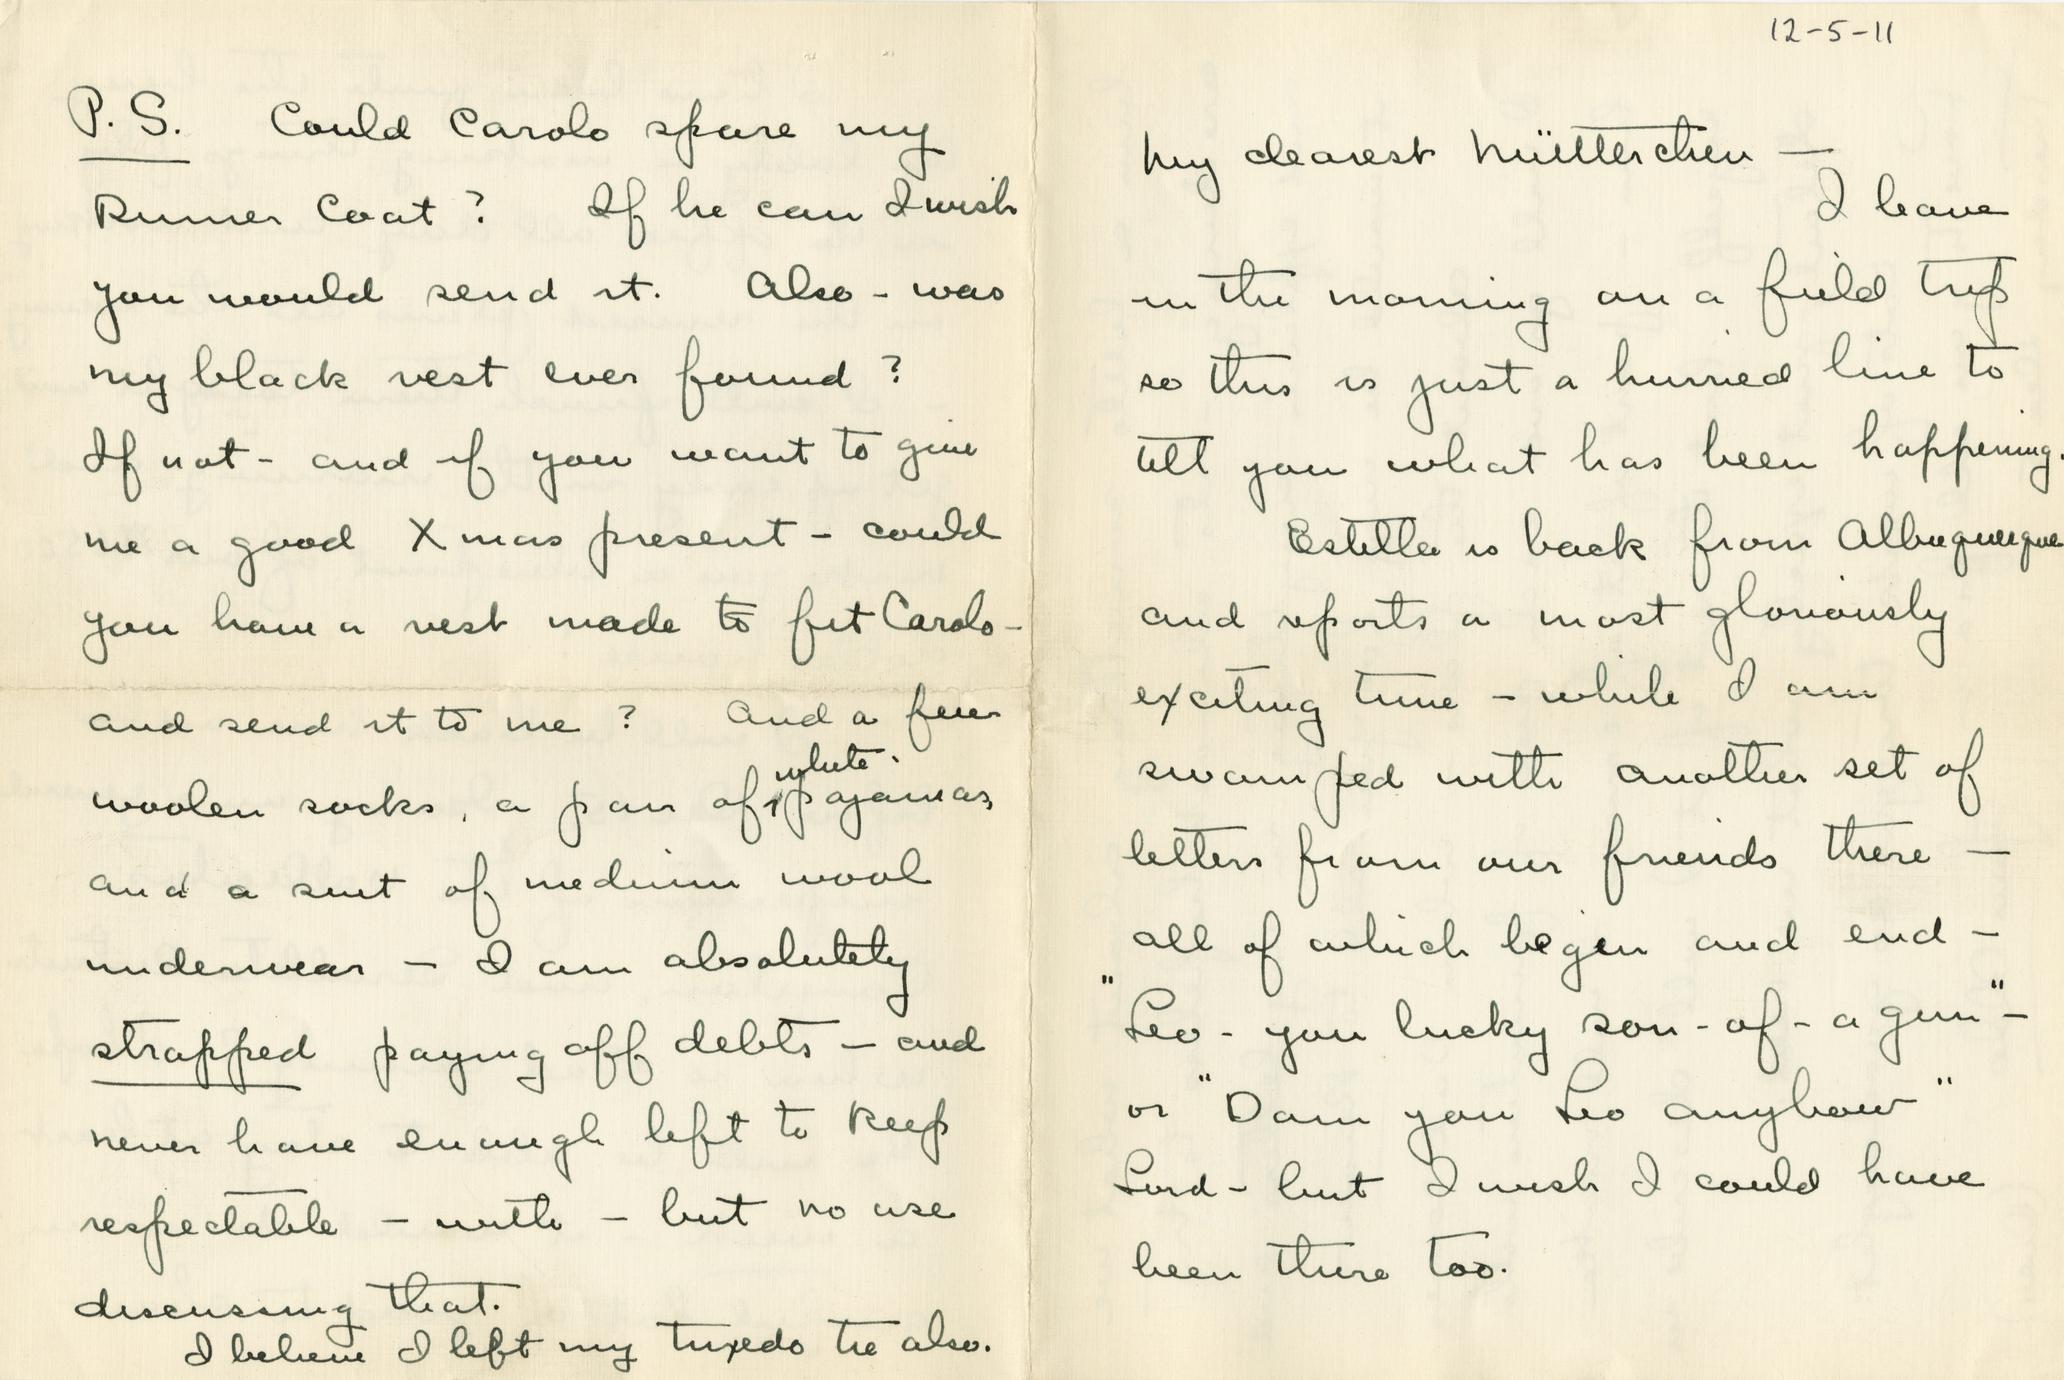 12-5-11
My dearest Mütterchen —
I leave
in the morning on a field trip
so this is just a hurried line to
tell you what has been happening.
Estella is back from Albuquerque
and reports a most gloriously
exciting time – while I am
swamped with another set of
letters from our friends there —
all of which begin and end –
"Leo - you lucky son-of-a gun" –
or "Dam you Leo anyhow"
Lord – but I wish I could have
been there too.
P. S. Could Carolo spare my
Runner Coat? If he can I wish
you would send it. Also - was
my black vest ever found?
If not - and if you want to give
me a good Xmas present – could
you have a vest made to fit Carolo -
and send it to me? And a few
white
woolen socks, a pair of pajamas,
and a suit of medium wool
underwear – I am absolutely
strapped paying off debts – and
never have enough left to keep
respectable – with – but no use
discussing that.
I believe I left my tuxedo tie also.